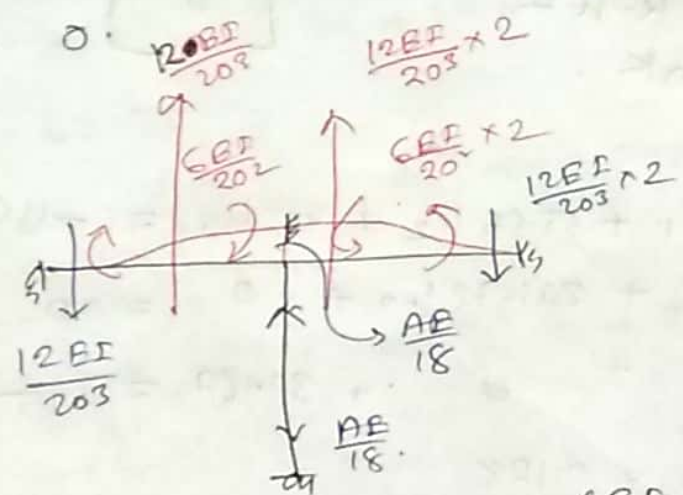 0.
12EI/20³
12EI/20³ × 2
6EI/20²
6EI/20² × 2
12EI/20³ × 2
12EI/20³
AE/18
AE/18.